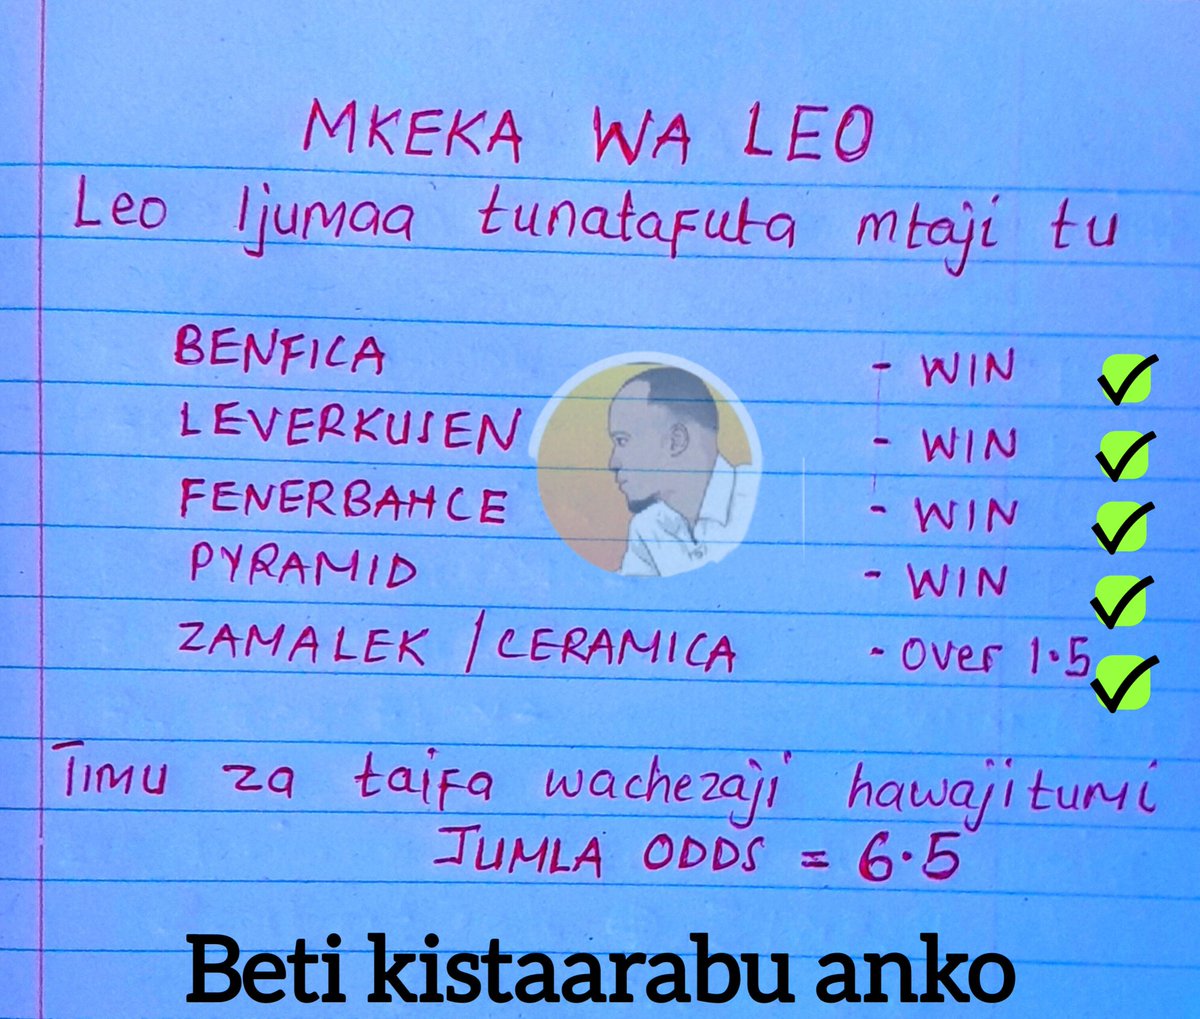 MKEKA WA LEO
Leo Ijumaa tunatafuta mtaji tu
BENFICA - WIN
LEVERKUSEN - WIN
FENERBAHCE - WIN
PYRAMID - WIN
ZAMALEK / CERAMICA - Over 1.5
Timu za taifa wachezaji hawajitumi
JUMLA ODDS = 6.5
Beti kistaarabu anko